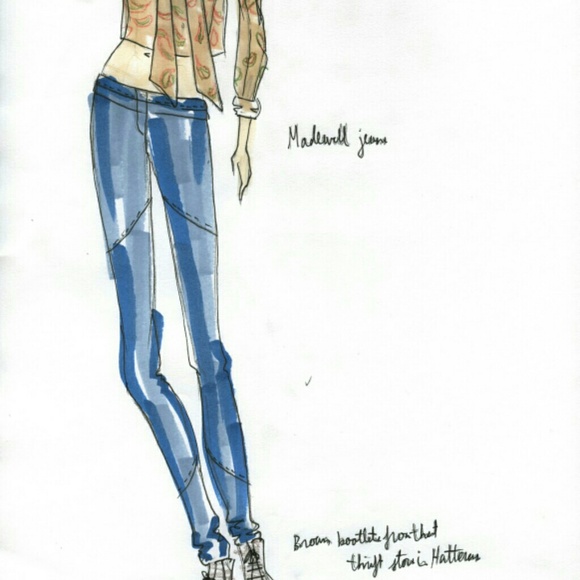 Madewell jeans
Brown booties from that
thrift store in Hatteras